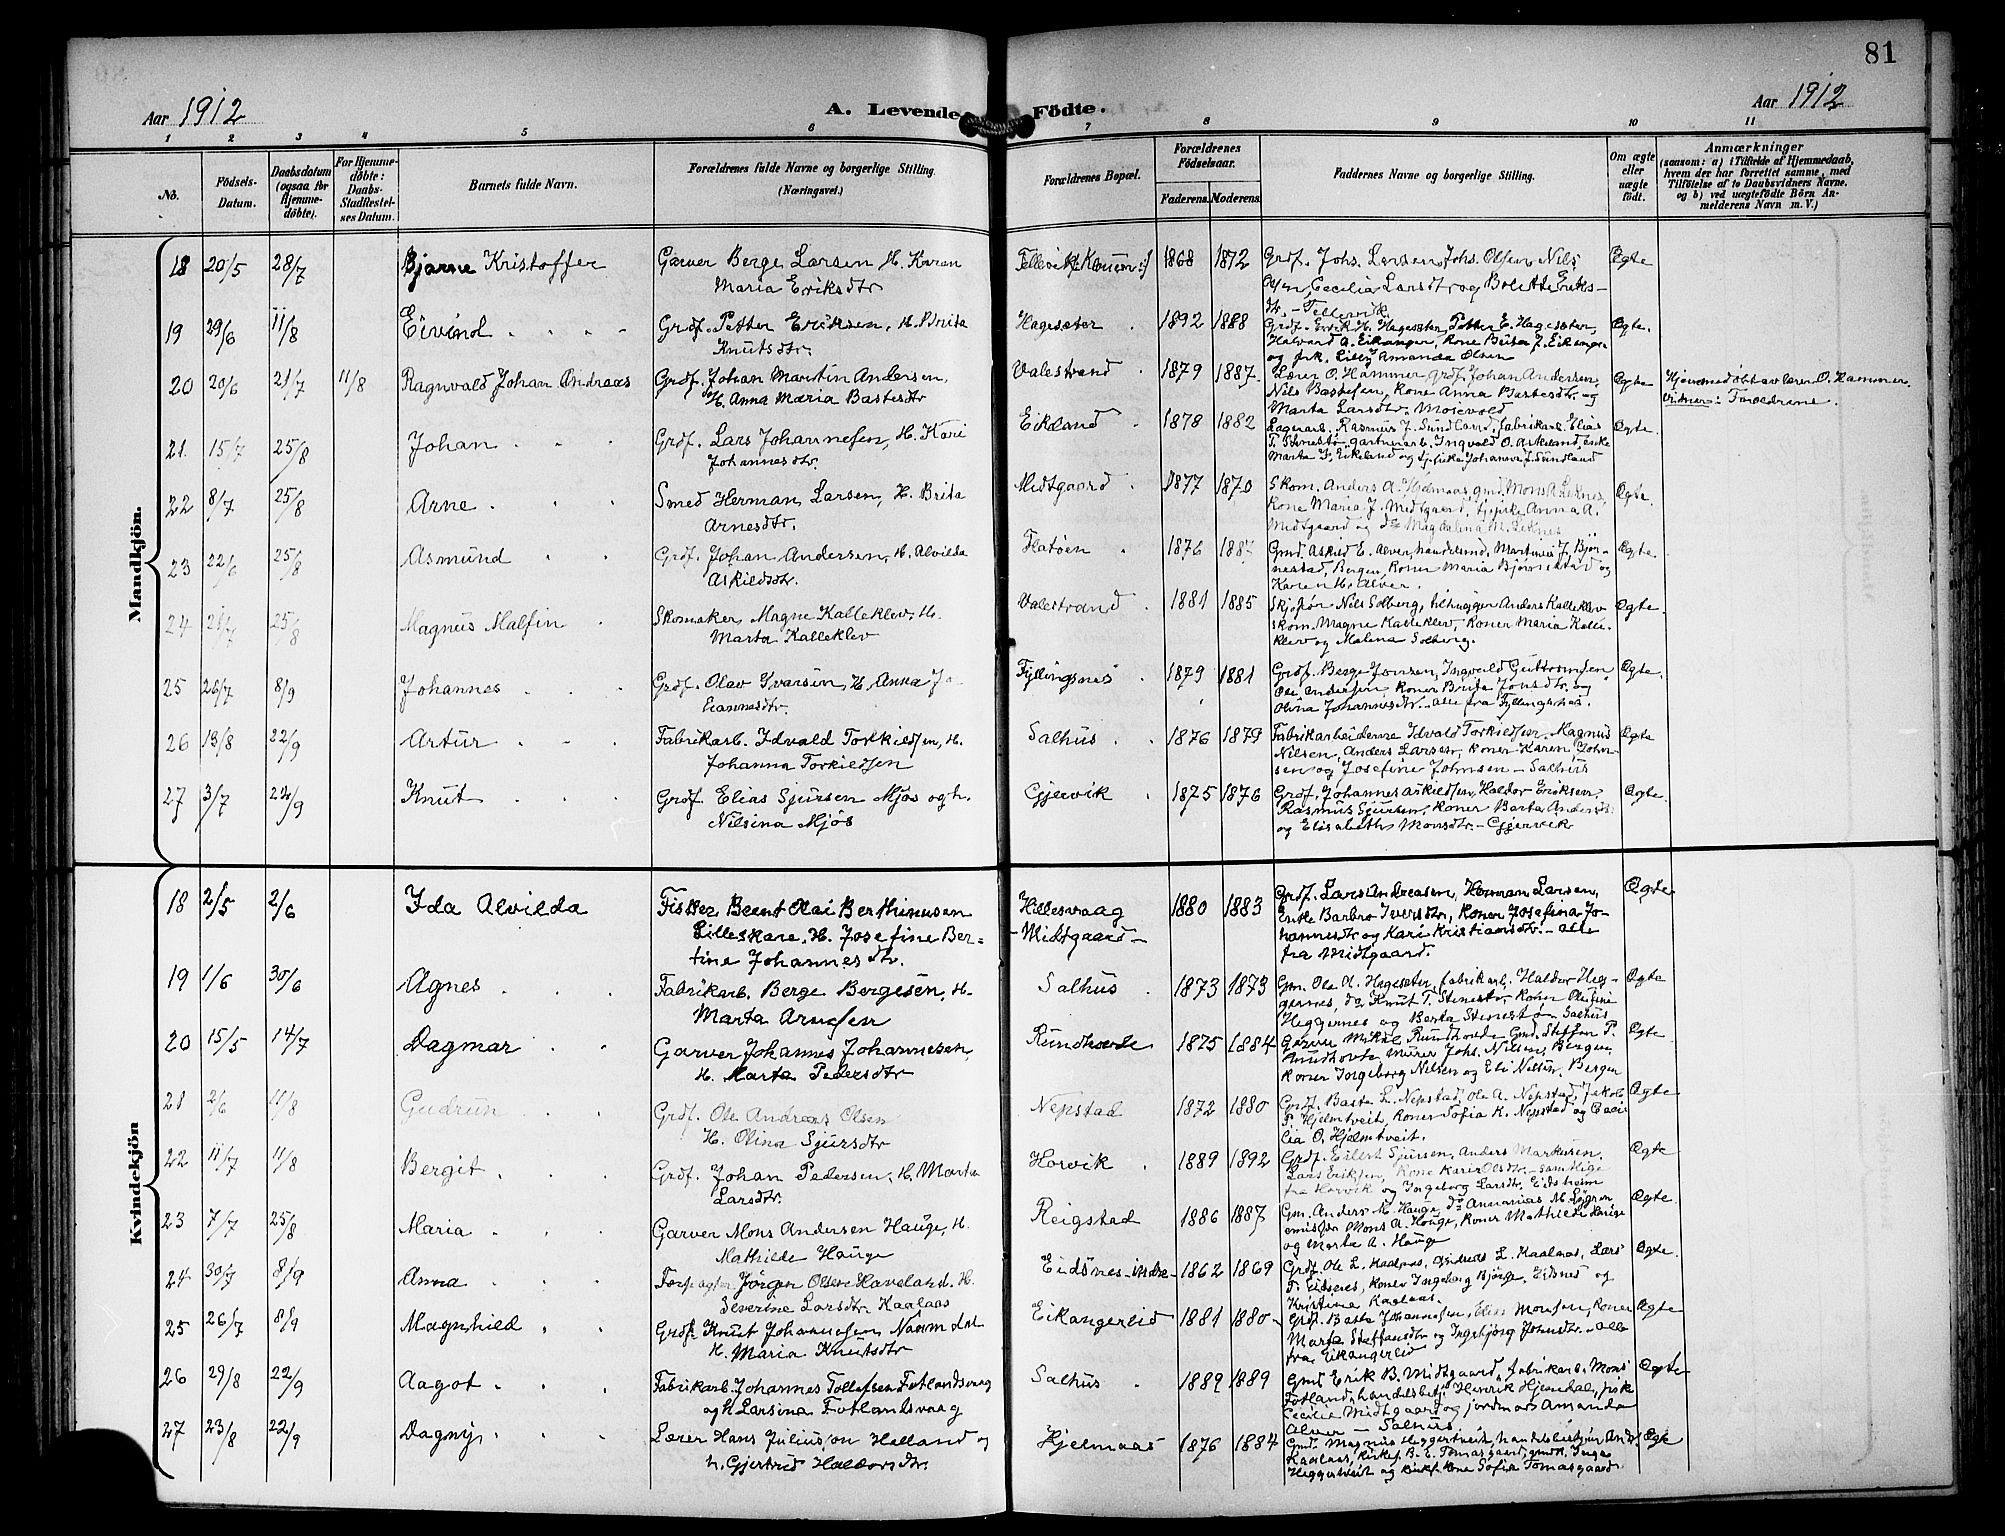 81
Aar 1912
A. Levende Födte.
Aar 1912
1 2 3 4 5 6 7 8 9 10 11
No.
Födsels-Datum.
Daabsdatum (ogsaa for Hjemme-døbte).
For Hjemme-døbte: Daabs-Stadfæstelses Datum.
Barnets fulde Navn.
Forældrenes fulde Navne og borgerlige Stilling.
(Næringsvei.)
Forældrenes Bopæl.
Forældrenes Födselsaar.
Faderens. Moderens.
Faddernes Navne og borgerlige Stilling.
Om ægte eller uægte födt.
Anmærkninger
(saasom: a) i Tilfælde af Hjemmedaab,
hvem der har forrettet samme, med
Tilföielse af to Daabsvidners Navne,
og b) ved uægtefödte Börn An-
melderens Navn m. V.)
Mandkjön.
18 20/5 28/7 Bjarne Kristoffer Garver Berge Larsen, H. Karen Tellevik 1868 1872 Grdf. Johs. Larsen, Johs. Olsen, Nils Ægte
Maria Eriksdtr Olsen, Cecilia Larsdtr og Bolette Eriks-
dtr. – Tellevik
19 29/6 11/8 Eivind Grdf. Petter Eriksen, H. Brita Hagesæter 1892 1888 Grdf. Erik H. Hagesæter, Petter E. Hagesæter, Ægte.
Knutsdtr. Halvard A. Eikanger, Kone Brita J. Eikanger
og frk. Lilly Amanda Olsen
20 20/6 21/7 11/8 Ragnvald Johan Andreas Grdf. Johan Martin Andersen, Valestrand 1879 1887 Lærer O. Hammer, grdf. Johan Andersen, Ægte Hjemmedøbt av lærer O. Hammer.
H. Anna Maria Bastesdtr Nils Bastesen, Kone Anna Bastesdtr. og Vidner: Forældrene.
Marta Larsdtr. Mosevold
21. 15/7 25/8 Johan Grdf. Lars Johannesen, H. Kari Eikland 1878 1882 Lagerarb. Rasmus J. Sundland, fabrikarb. Elias Ægte.
Johannesdtr. T. Stenestø, gartnerarb. Ingvald O. Askeland, enke
Marta I. Eikeland og tjpike Johanna J. Sundland
22 8/7 25/8 Arne Smed Herman Larsen, H. Brita Midtgaard 1877 1870 Skom. Anders A. Hjelmaas, gmd. Mons A. Leknes, Ægte
Arnesdtr. Kone Maria J. Midtgaard, tjpike Anna A.
Midtgaard og do Magdalina M. Leknes
23 22/6 25/8 Asmund Grdf. Johan Andersen, H. Alvilda Flatøen 1876 1887 Gmd. Askild E. Alver, handelsmd. Martinus J. Bjør- Ægte.
Askildsdtr. nestad, Bergen, Koner Maria Bjørnestad og
Karen H. Alver.
24 21/7 25/8 Magnus Malfin Skomaker Magne Kalleklev, H. Valestrand 1881 1885 Skjofør Nils Solberg, tilhugger Anders Kalleklev Ægte.
Marta Kalleklev Skom. Magne Kalleklev, Koner Maria Kalle-
klev og Malena Solberg.
25 26/7 8/9 Johannes Grdf. Olav Ivarsen, H. Anna Jo- Fyllingsnes 1879 1881 Grdf. Berge Jonsen, Ingvald Guttormsen, Ægte.
hannesdtr. Ole Andersen, Koner Brita Jonsdtr. og
Olina Johannesdtr. – alle fra Fyllingsnes.
26 13/8 22/9 Artur Fabrikarb. Idvald Torkildsen, H. Salhus 1876 1879 Fabrikarbeiderne Idvald Torkildsen, Magnus Ægte
Johanna Torkildsen Nilsen, Anders Larsen, Koner Karen John-
sen og Josefine Johnsen – Salhus
27 3/7 22/9 Knut Grdf. Elias Sjursen Mjøs og h. Gjervik 1875 1876 Grdf. Johannes Askildsen, Haldor Eriksen, Ægte.
Nilsina Mjøs Rasmus Sjursen, Koner Barta Andersdt.
og Elisabeth Monsdtr. – Gjervik
Kvindekjön
18 2/5 2/6 Ida Alvilda Fisker Beent Olai Berthinusen Hillesvaag 1880 1883 Grdf. Lars Andreasen, Herman Larsen, Ægte
Lilleskare, H. Josefine Ber- – Midtgaard – Enke Barbro Iversdtr, Koner Josefina Jo-
tine Johannesdtr. hannesdtr og Kari Kristiansdtr. – alle
fra Midtgaard.
19 1/6 30/6 Agnes Fabrikarb. Berge Bergesen, H. Salhus 1873 1873 Gm. Ole A. Hagesæter, fabrikarb. Haldor Heg- Ægte
Marta Arnesen gernes, do Knut T. Stenestø, Koner Olufine
Heggernes og Berta Stenestø – Salhus
20 15/5 14/7 Dagmar Garver Johannes Johannesen, Rundhovde 1875 1884 Garver Mikal Rundhovde, Gmd. Steffen P. Ægte.
H. Marta Pedersdtr Rundhovde, Murer Johs. Nilsen, Bergen,
Koner Ingeborg Nilsen og Eli Nilsen, Bergen
21 2/6 11/8 Gudrun Grdf. Ole Andreas Olsen Nepstad 1872 1880 Grdf. Baste L. Nepstad, Ole A. Nepstad, Jakob Ægte
H. Olina Sjursdtr P. Hjelmtveit, Koner Sofia K. Nepstad og Ceci-
lia O. Hjelmtveit.
22 11/7 11/8 Bergit Grdf. Johan Pedersen, H. Marta Horvik 1889 1892 Grdf. Eilert Sjursen, Anders Markusen, Ægte
Larsdtr. Lars Eriksen, Kone Kari Olsdtr. – samtlige
fra Horvik og Ingeborg Larsdtr. Eidsheim
23 7/7 25/8 Maria Garver Mons Andersen Hauge, H. Reigstad 1886 1887 Gm. Anders M. Hauge, do Annanias M. Ægte
Mathilde Hauge Mons A. Hauge, Koner Mathilde Hauge
og Marta A. Hauge
24 30/7 8/9 Anna Forpagter Jørgen Olsen Haveland, H. Eidsnes indre 1862 1869 Grdf. Ole L. Kaalaas, Andreas L. Kaalaas, Lars Ægte.
Severine Larsdtr Kaalaas T. Eidsnes, Koner Ingeborg Bjørge, Eidsnes og
Kristine Kaalaas.
25 26/7 8/9 Magnhild Grdf. Knut Johannesen Naamdal Eikangerlid 1881 1880 Grdf. Baste Johannesen, Elias Monsen, Koner Ægte
H. Maria Knutsdtr Marta Steffensdtr og Ingebjørg Johnsdtr. – alle
fra Eikangerlid
26 29/8 22/9 Aagot Fabrikarb. Johannes Tollefsen Fotlandsvaag Salhus 1889 1889 Gmd. Erik B. Midtgaard, fabrikarb. Mons Ægte
og h. Larsina Fotlandsvaag Fotland, handelsbetj. Henrik Hjemdal, frøk
Cecilie Midtgaard og jordmor Amanda
Alver – Salhus
27 23/8 22/9 Dagny Lærer Hans Juliusson Helland og Hjelmaas 1876 1884 Gmd. Magnus Heggertveit, handelsbestyrer Andr. Ægte
h. Gjertrud Haldorsdtr. Kaalaas, Kirkes. B. E. Tomasgaard, gmdk. Inga
Heggertveit og Kirkes. Kone Sofia Tomasgaard